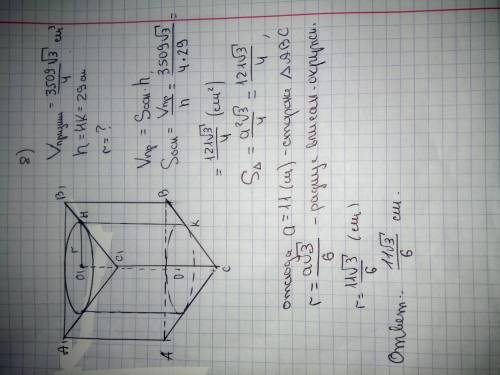 8)
Vпризмы = 3509√3/4 см³
h = HK = 29 см
r = ?
Vпр = Sосн · h,
Sосн = Vпр/h = 3509√3/4·29 =
= 121√3/4 (см²)
S△ = a²√3/4 = 121√3/4,
отсюда a = 11 (см) - сторона △ABC
r = a√3/6 - радиус вписан. окружн.
r = 11√3/6 (см)
Ответ: 11√3/6 см.
A₁
B₁
C₁
O₁
r
H
A
B
C
O
K